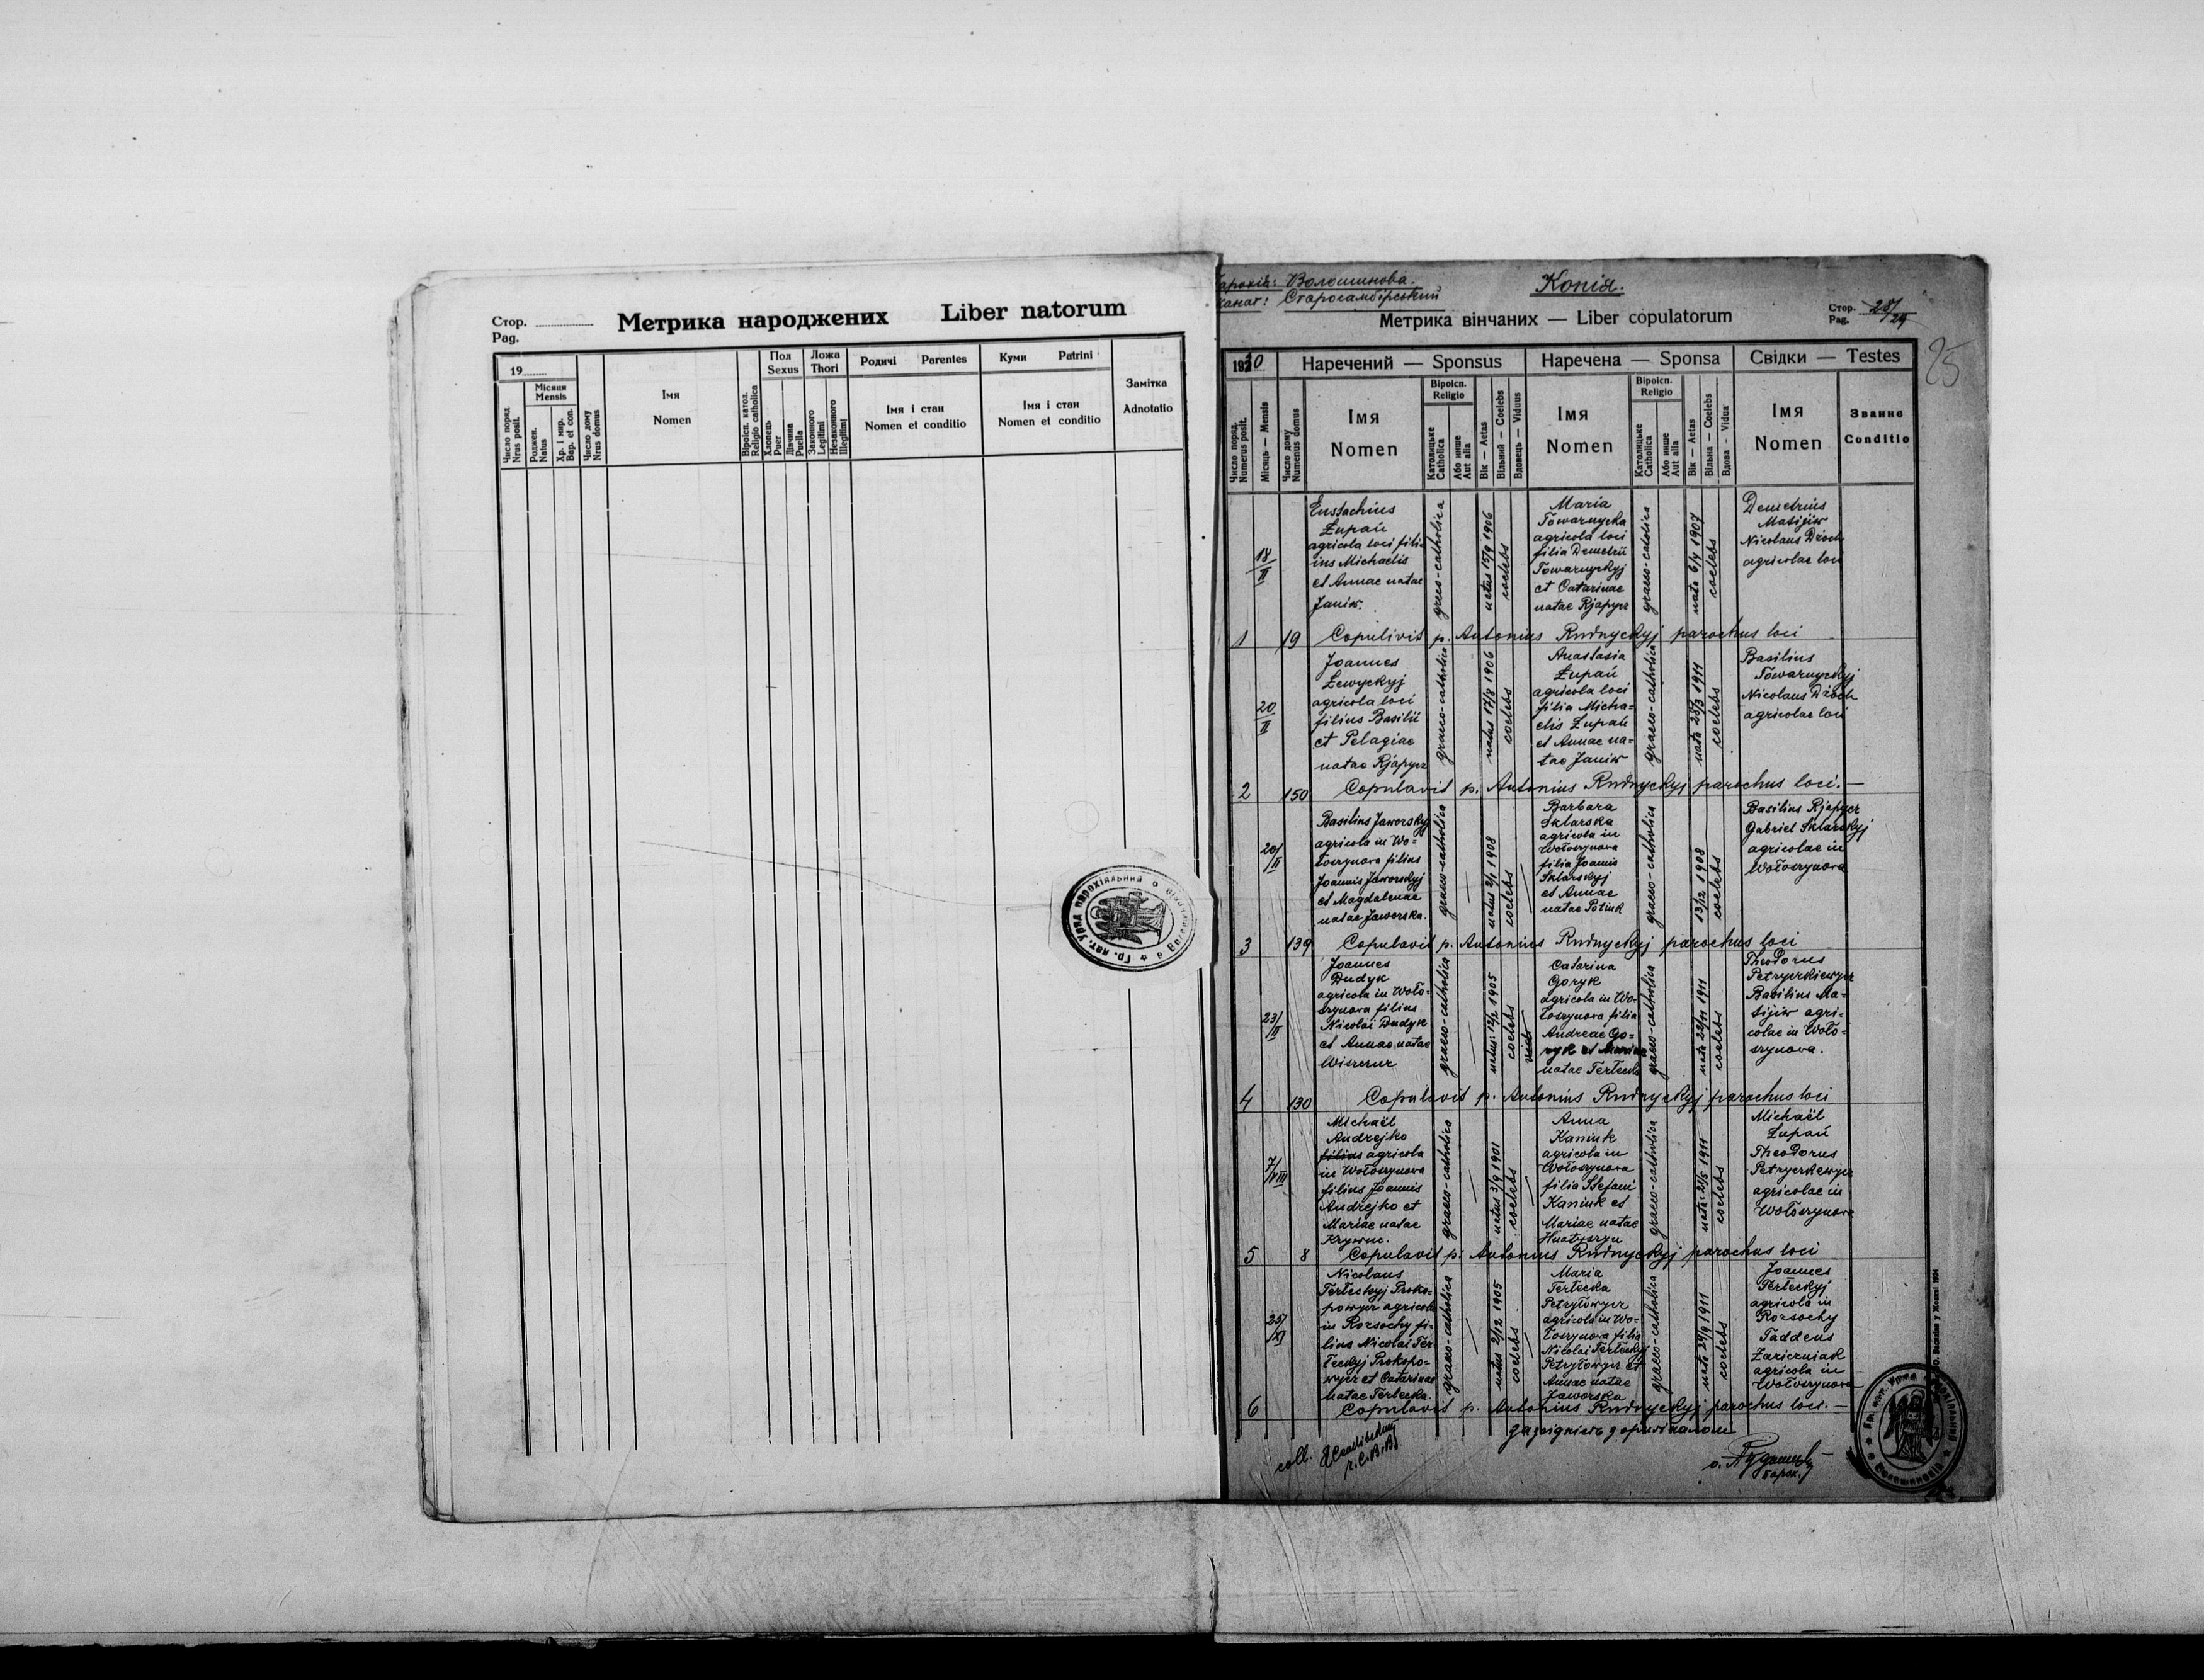 Стор.
Pag.
Метрика народжених Liber natorum
19
Число поряд
Nrus posit.
Місяця
Mensis
Роджен.
Natus
Хр. і мир.
Bap. et con.
Число дому
Nrus domus
Імя
Nomen
Віроісп. катол.
Religio catholica
Пол
Sexus
Хлопець
Puer
Дівчина
Puella
Ложа
Thori
Законного
Legitimi
Незаконного
Illegitimi
Родичі Parentes
Імя і стан
Nomen et conditio
Куми Patrini
Імя і стан
Nomen et conditio
Замітка
Adnotatio
Волошинова.
Старосамбірський
Копія.
Метрика вінчаних — Liber copulatorum
Стор.
Pag.
28/29
25
1930
Наречений — Sponsus
Наречена — Sponsa
Свідки — Testes
Число поряд.
Numerus posit.
Місяць — Mensis
Число дому
Numerus domus
Імя
Nomen
Віроісп.
Religio
Католицьке
Catholica
Або инше
Aut alia
Вік — Aetas
Вільний — Coelebs
Вдовець — Viduus
Імя
Nomen
Віроісп.
Religio
Католицьке
Catholica
Або инше
Aut alia
Вік — Aetas
Вільна — Coelebs
Вдова — Vidua
Імя
Nomen
Звання
Conditio
18/II
Eustachius
Łupań
agricola loci fili-
ius Michaelis
et Annae natae
Janiw.
graeco-catholica
natus 15/9 1906
coelebs
Maria
Towarnycka
agricola loci
filia Demetrii
Towarnyckyj
et Catarinae
natae Rjapycz
graeco-catolica
nata 6/4 1907
coelebs
Demetrius
Matijiw
Nicolaus Dżoch
agricolae loci
1 19 Copulivit p. Antonius Rudnyckyj parochus loci
20/II
Joannes
Łewyckyj
agricola loci
filius Basilii
et Pelagiae
natae Rjapycz
graeco-catholica
natus 17/8 1906
coelebs
Anastasia
Łupań
agricola loci
filia Micha-
elis Łupań
et Annae na-
tae Janiw
graeco-catholica
nata 28/3 1911
coelebs
Basilius
Towarnyckyj
Nicolaus Dżoch
agricolae loci
2 150 Copulavit p. Antonius Rudnyckyj parochus loci. —
20/II
Basilius Jaworskyj
agricola in Wo-
łoszynowa filius
Joannis Jaworskyj
et Magdalenae
natae Jaworska.
graeco-catholica
natus 2/1 1908
coelebs
Barbara
Sklarska
agricola in
Wołoszynowa
filia Joannis
Sklarskyj
et Annae
natae Potiuk
graeco-catholica
13/12 1908
coelebs
Basilius Rjapycz
Gabriel Sklarskyj
agricolae in
Wołoszynowa
3 139 Copulavit p. Antonius Rudnyckyj parochus loci
23/II
Joannes
Dudyk
agricola in Woło-
szynowa filius
Nicolai Dudyk
et Annae natae
graeco-catholica
1905
coelebs
Catarina
Goryk
agricola in Wo-
łoszynowa filia
Andreae Go-
ryk et Mariae
natae Terlecka
graeco-catholica
nata 22/11 1911
coelebs
Theodorus
Petryczkiewycz
Basilius Ma-
tijiw agri-
colae in Woło-
szynowa.
4 130 Copulavit p. Antonius Rudnyckyj parochus loci
7/VIII
Michaël
Andrejko
filius agricola
in Wołoszynowa
filius Joannis
Andrejko et
Mariae natae
Krywuc.
graeco-catholica
natus 3/9 1901
coelebs
Anna
Kaniuk
agricola in
Wołoszynowa
filia Stefani
Kaniuk et
Mariae natae
Hnatyszyn
graeco-catholica
nata 21/5 1911
coelebs
Michaël
Łupań
Theodorus
Petryczkewycz
agricolae in
Wołoszynowa
5 8 Copulavit p. Antonius Rudnyckyj parochus loci
25/XI
Nicolaus
Terłeckyj Proko-
powycz agricola
in Rozsochy fi-
lius Nicolai Ter-
łeckyj Prokopo-
wycz et Catarinae
natae Terłecka.
graeco-catholica
natus 2/12 1905
coelebs
Maria
Terłecka
Petryłowycz
agricola in Wo-
łoszynowa filia
Nikolai Terłeckyj
Petryłowycz et
Annae natae
Jaworska
graeco-catholica
nata 29/9 1911
coelebs
Joannes
Terłeckyj
agricola in
Rozsochy
Taddeus
Zariczniak
agricola in
Wołoszynowa
6 Copulavit p. Antonius Rudnyckyj parochus loci. —
coll.